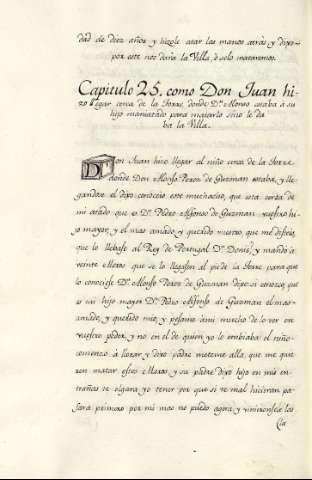 dad de diez años y hizole atar las manos atrás y dixo
por este nos dará la Villa, o solo mataremos.
Capitulo 25. como Don Juan hi-
zo llegar cerca de la torre, donde D.n Alonso estaba á su
hijo maniatado para matarlo sino le da
ba la Villa.
Don Juan hizo llegar al niño cerca de la torre
donde Don Alonso Perez de Guzman estaba, y lle-
gandose el dixo conoceis este muchacho, que esta cerca de
mi atado que es D.n Pedro Alfonso de Guzman vuestro hi-
jo mayor, y el mas amado, y querido vuestro, que me disteis,
que lo llebase al Rey de Portugal D.n Donis, y mandó a
veinte Moros que se lo llegasen al pie de la torre para que
lo conociese D.n Alonso Perez de Guzman dixo: si conozco, que
es mi hijo mayor D.n Pedro Alfonso de Guzman el mas
amado, y querido mio, y pesame á mi mucho de lo ver en
vuestro poder, y no en el de quien yo lo embiaba el niño
comenzó á llorar y dixo padre meteme allá que me quie
ren matar estos Moros y su padre dixo hijo en mis en-
trañas te olgara yo tener por que si te mal hicieran pa-
sara primero por mi mas no puedo agora, y vinieronse los